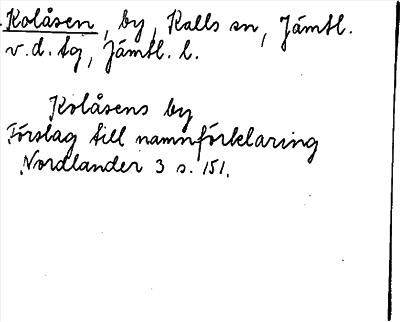 Kolåsen, by, Kalls sn, Jämtl.
v. d. tg, Jämtl. l.
Kolåsens by
Förslag till namnförklaring
Nordlander 3 s. 151.